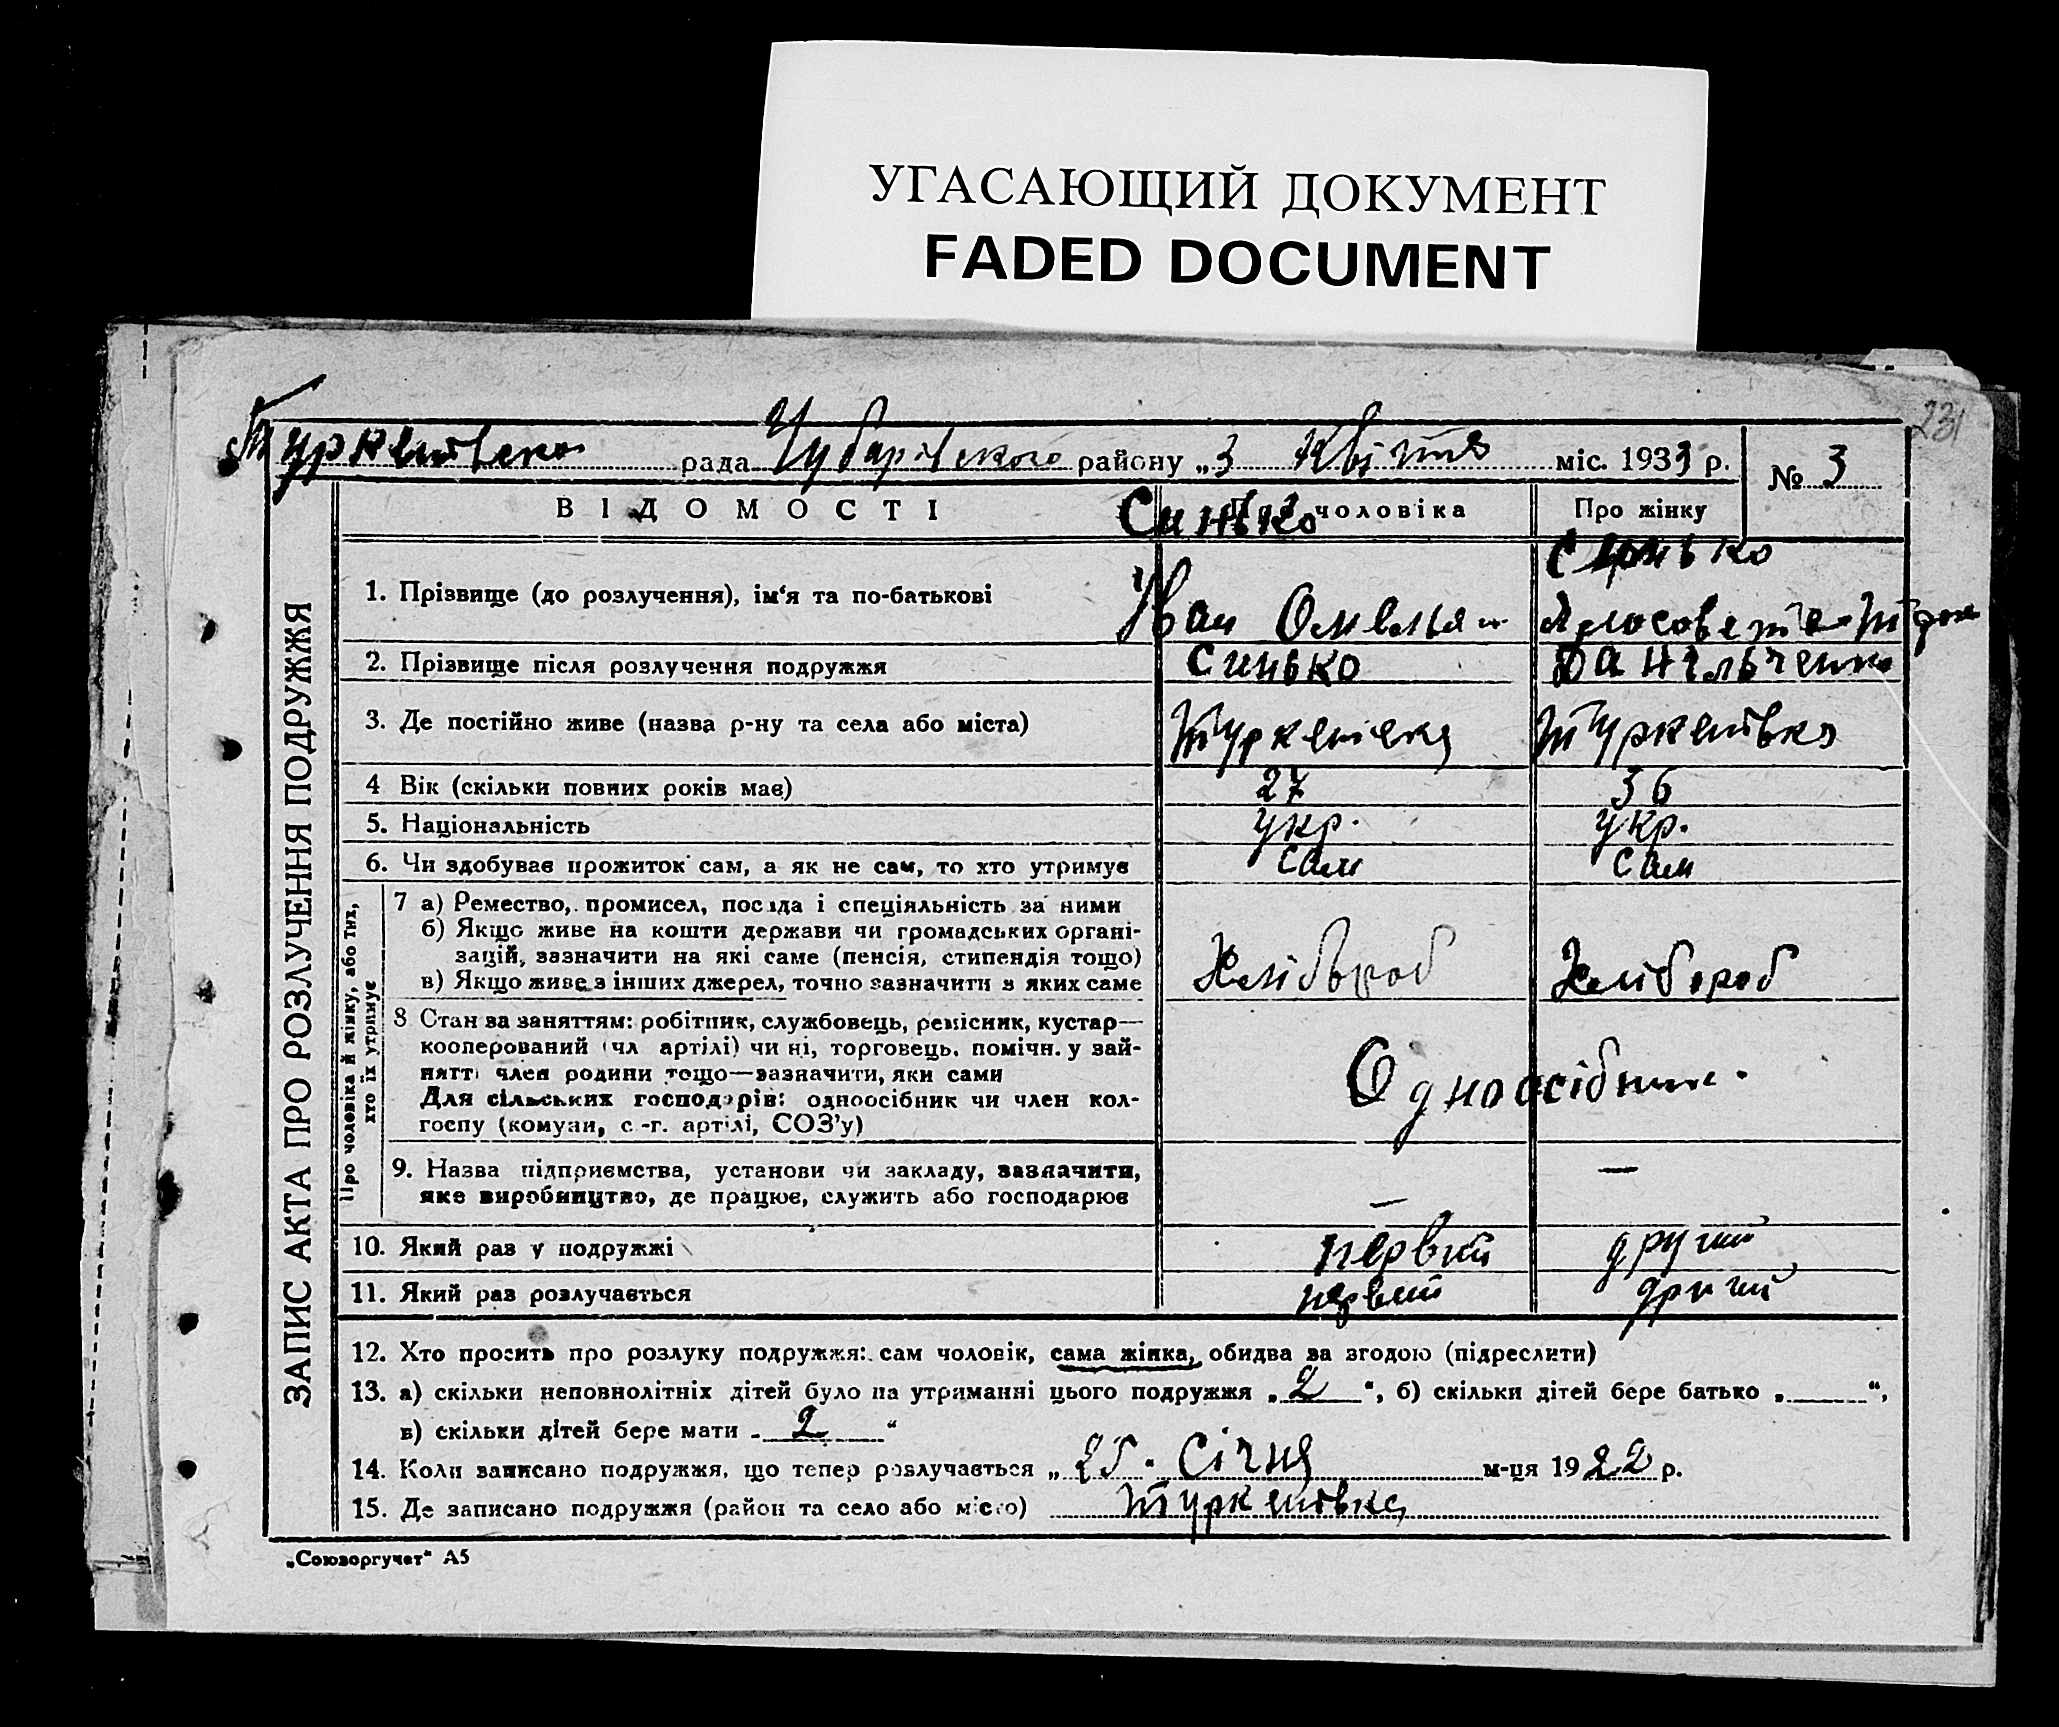 УГАСАЮЩИЙ ДОКУМЕНТ
FADED DOCUMENT
231
Туркенівська рада Чубарівського району „3 Квітня міс. 1933 р.
№ 3
ЗАПИС АКТА ПРО РОЗЛУЧЕННЯ ПОДРУЖЖЯ
ВІДОМОСТІ
Про чоловіка
Про жінку
1. Прізвище (до розлучення), ім'я та по-батькові
Синько
Іван
Синько
2. Прізвище після розлучення подружжя
Синько
Данільченко
3. Де постійно живе (назва р-ну та села або міста)
Туркенівка
Туркенівка
4 Вік (скільки повних років має)
27
36
5. Національність
укр.
укр.
6. Чи здобуває прожиток сам, а як не сам, то хто утримує
сам
сам
Про чоловіка й жінку, або тих,
хто їх утримує
7 а) Ремество, промисел, посада і спеціяльність за ними
б) Якщо живе на кошти держави чи громадських органі-
зацій, зазначити на які саме (пенсія, стипендія тощо)
в) Якщо живе з інших джерел, точно зазначити з яких саме
Хлібороб
Хлібороб
8 Стан за заняттям: робітник, службовець, ремісник, кустар—
кооперований (чл артілі) чи ні, торговець, помічн. у зай-
нятті член родини тощо—зазначити, яки сами
Для сільських господарів: одноосібник чи член кол-
госпу (комуни, с.-г. артілі, СОЗ'у)
Одноосібник.
9. Назва підприємства, установи чи закладу, зазначити,
яке виробництво, де працює, служить або господарює
—
—
10. Який раз у подружжі
первий
другий
11. Який раз розлучається
первий
другий
12. Хто просить про розлуку подружжя: сам чоловік, сама жінка, обидва за згодою (підреслити)
13. а) скільки неповнолітніх дітей було на утриманні цього подружжя „ 2 “, б) скільки дітей бере батько „ “,
в) скільки дітей бере мати „ 2 “
14. Коли записано подружжя, що тепер розлучається „ 25 “ Січня м-ця 1922 р.
15. Де записано подружжя (район та село або місто) Туркенівка
„Союзоргучет“ А5